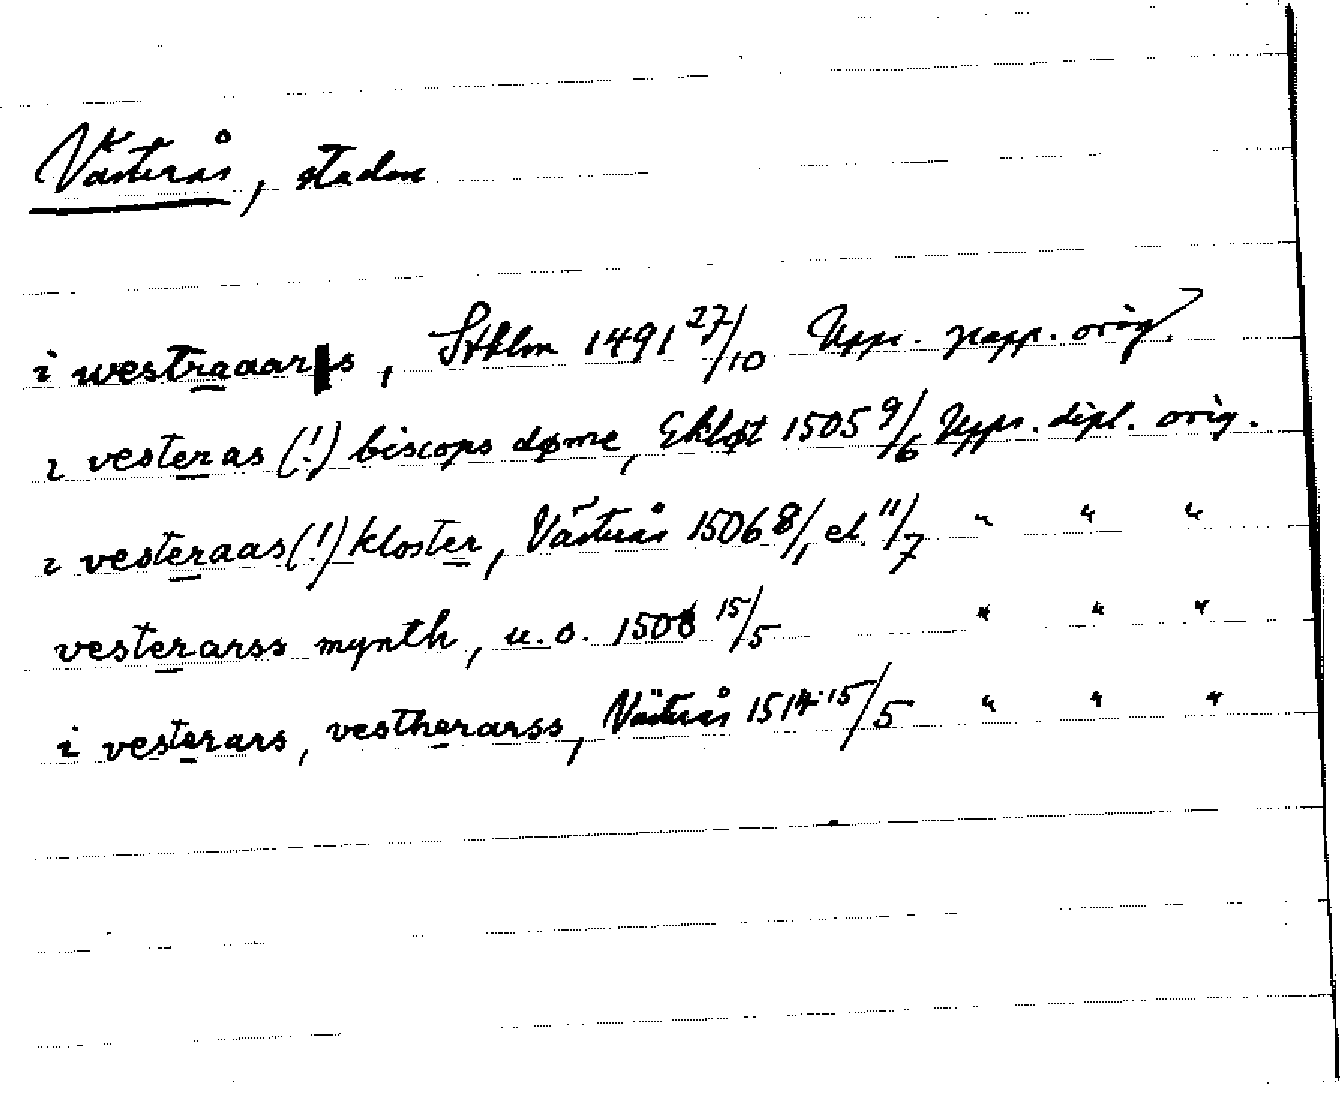 Västerås, staden
i westraaars, Sthlm 1491 27/10 Upps. papp. orig.
i vesteras (!) biscops døme, Ekløt 1505 9/6 Upps. dipl. orig.
i vesteraas (!) kloster, Västerås 1506 8/1 el. 11/7 " " "
vesterarss mynth, u.o. 1506 15/5 " " "
i vesterars, vestherarss, Västerås 1514 15/5 " " "